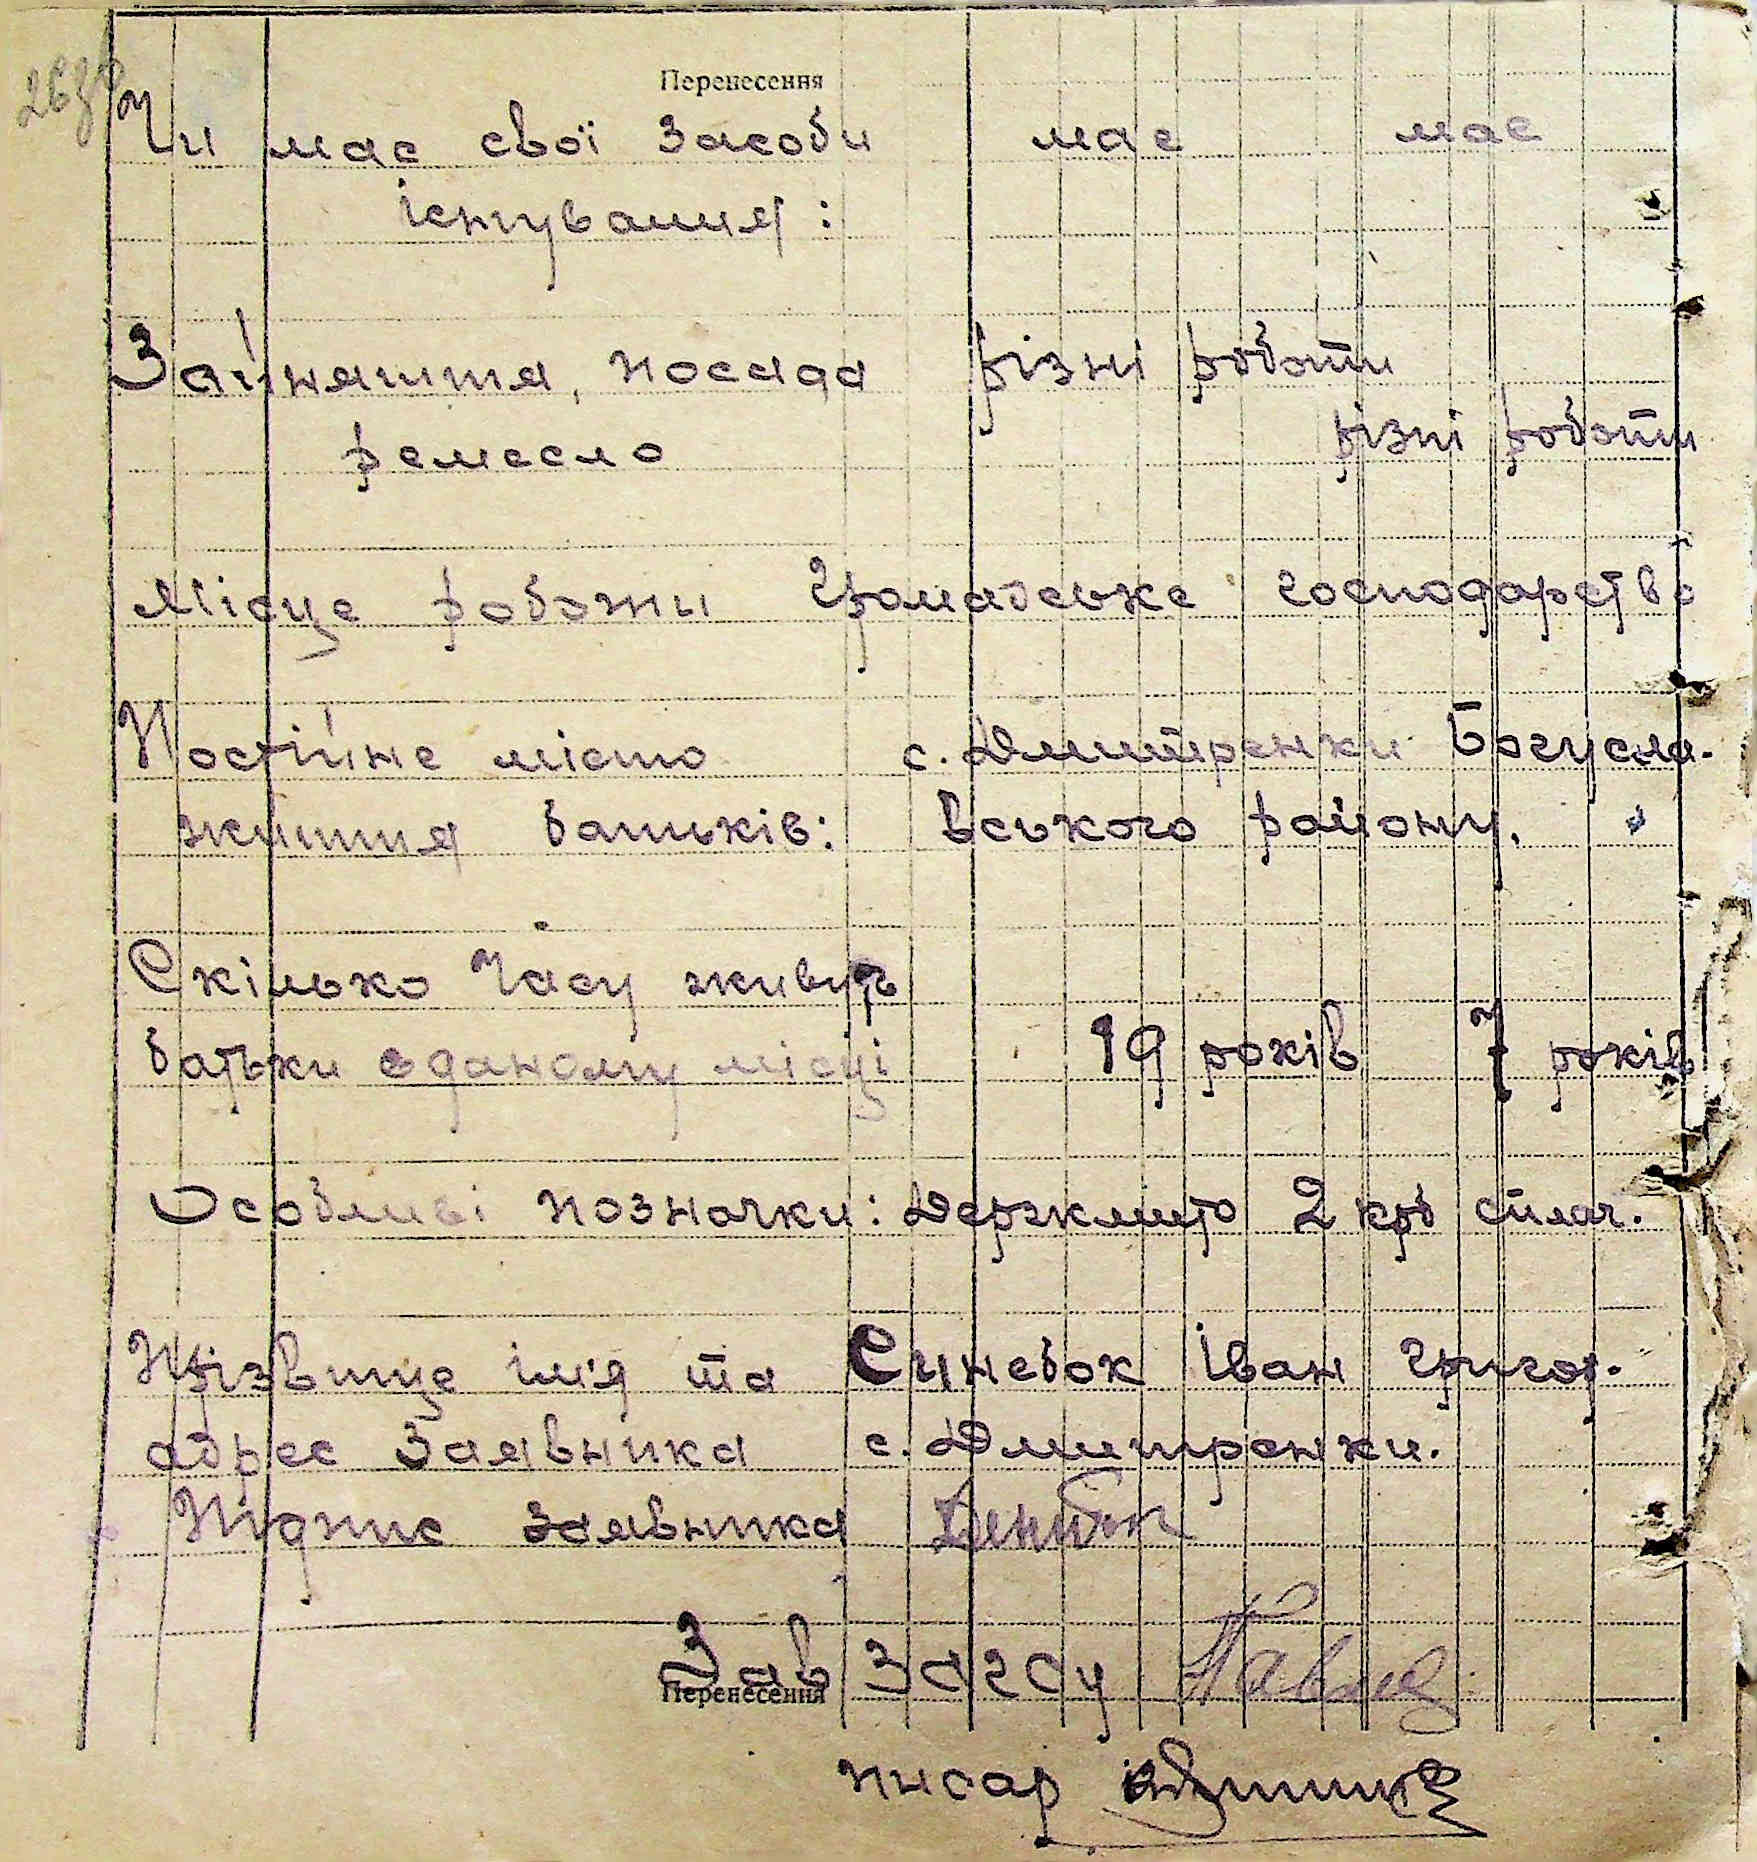 26зв
Перенесення
Чи має свої засоби має має
існування:
Зайняття, посада різні роботи
ремесло різні роботи
Місце роботи Громадське господарство
Постійне місто с. Дмитренки Богусла-
життя батьків: вського району.
Скілько часу живуть
батьки в даному місці 19 років 7 років
Особливі позначки: Держмито 2 крб сплач.
Прізвище ім'я та Синебок Іван Григор.
адрес Заявника с. Дмитренки.
Підпис заявника
Зав Загсу
Перенесення
писар